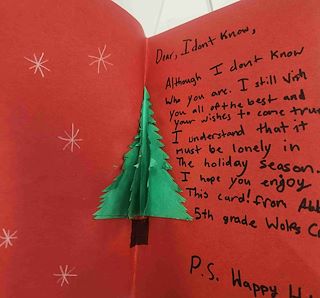 Dear, I dont Know,
Although I dont Know
Who you are. I still Vish
you all of the best and
your wishes to come true
I understand that it
must be lonely in
The holiday season.
I hope you enjoy
This card! from Abb
5th grade Wolks C
P.S. Happy H